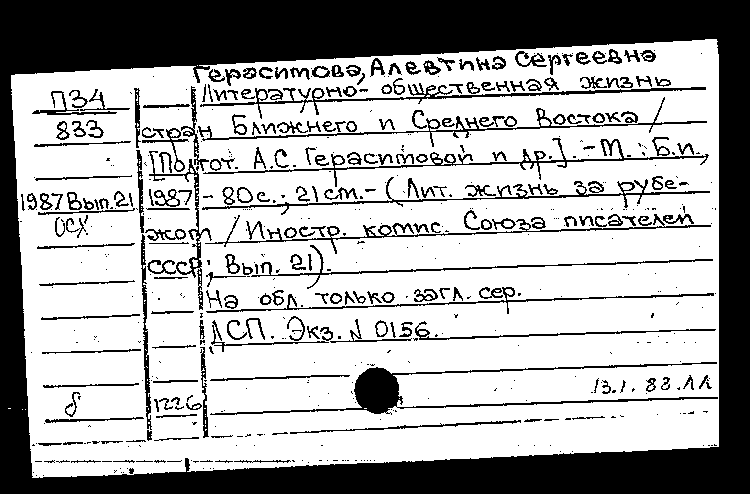 Герасимова, Алевтина Сергеевна
П34 Литературно-общественная жизнь
833 стран Ближнего и Среднего Востока /
[Подгот. А.С. Герасимовой и др.]. - М. : Б.и.,
1987 Вып. 21 1987 - 80 с. ; 21 см. - (Лит. жизнь за рубе-
ОСХ жом / Иностр. комис. Союза писателей
СССР ; Вып. 21).
На обл. только загл. сер.
ДСП. Экз. N 0156.
13.1.88.ЛЛ
8 1226